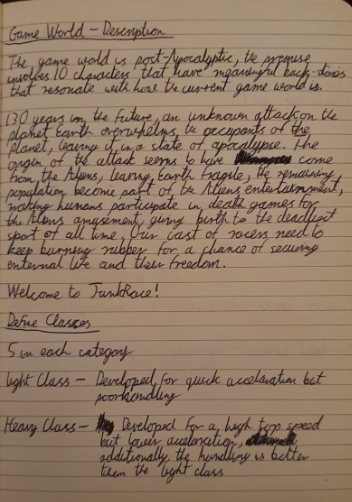 Game World - Description
The game world is post-Apocalyptic, the premise
involves 10 characters that have meaningful back-stories
that resonate with how the current game world is.
130 years in the future, an unknown attack on the
planet Earth overwhelms the occupants of the
planet, leaving it in a state of apocalypse. The
origin of the attack seems to have come
from the Aliens, leaving Earth fragile, the remaining
population become part of the Aliens entertainment,
making humans participate in death games for
the Aliens amusement, giving birth to the deadliest
sport of all time, Our cast of racers need to
keep burning rubber for a chance of securing
enternal life and their freedom.
Welcome to JunkRace!
Define Classes
5 in each category
Light Class - Developed for quick acceleration but
poor handling
Heavy Class - Developed for a high top speed
but lower acceleration,
additionally the handling is better
then the light class